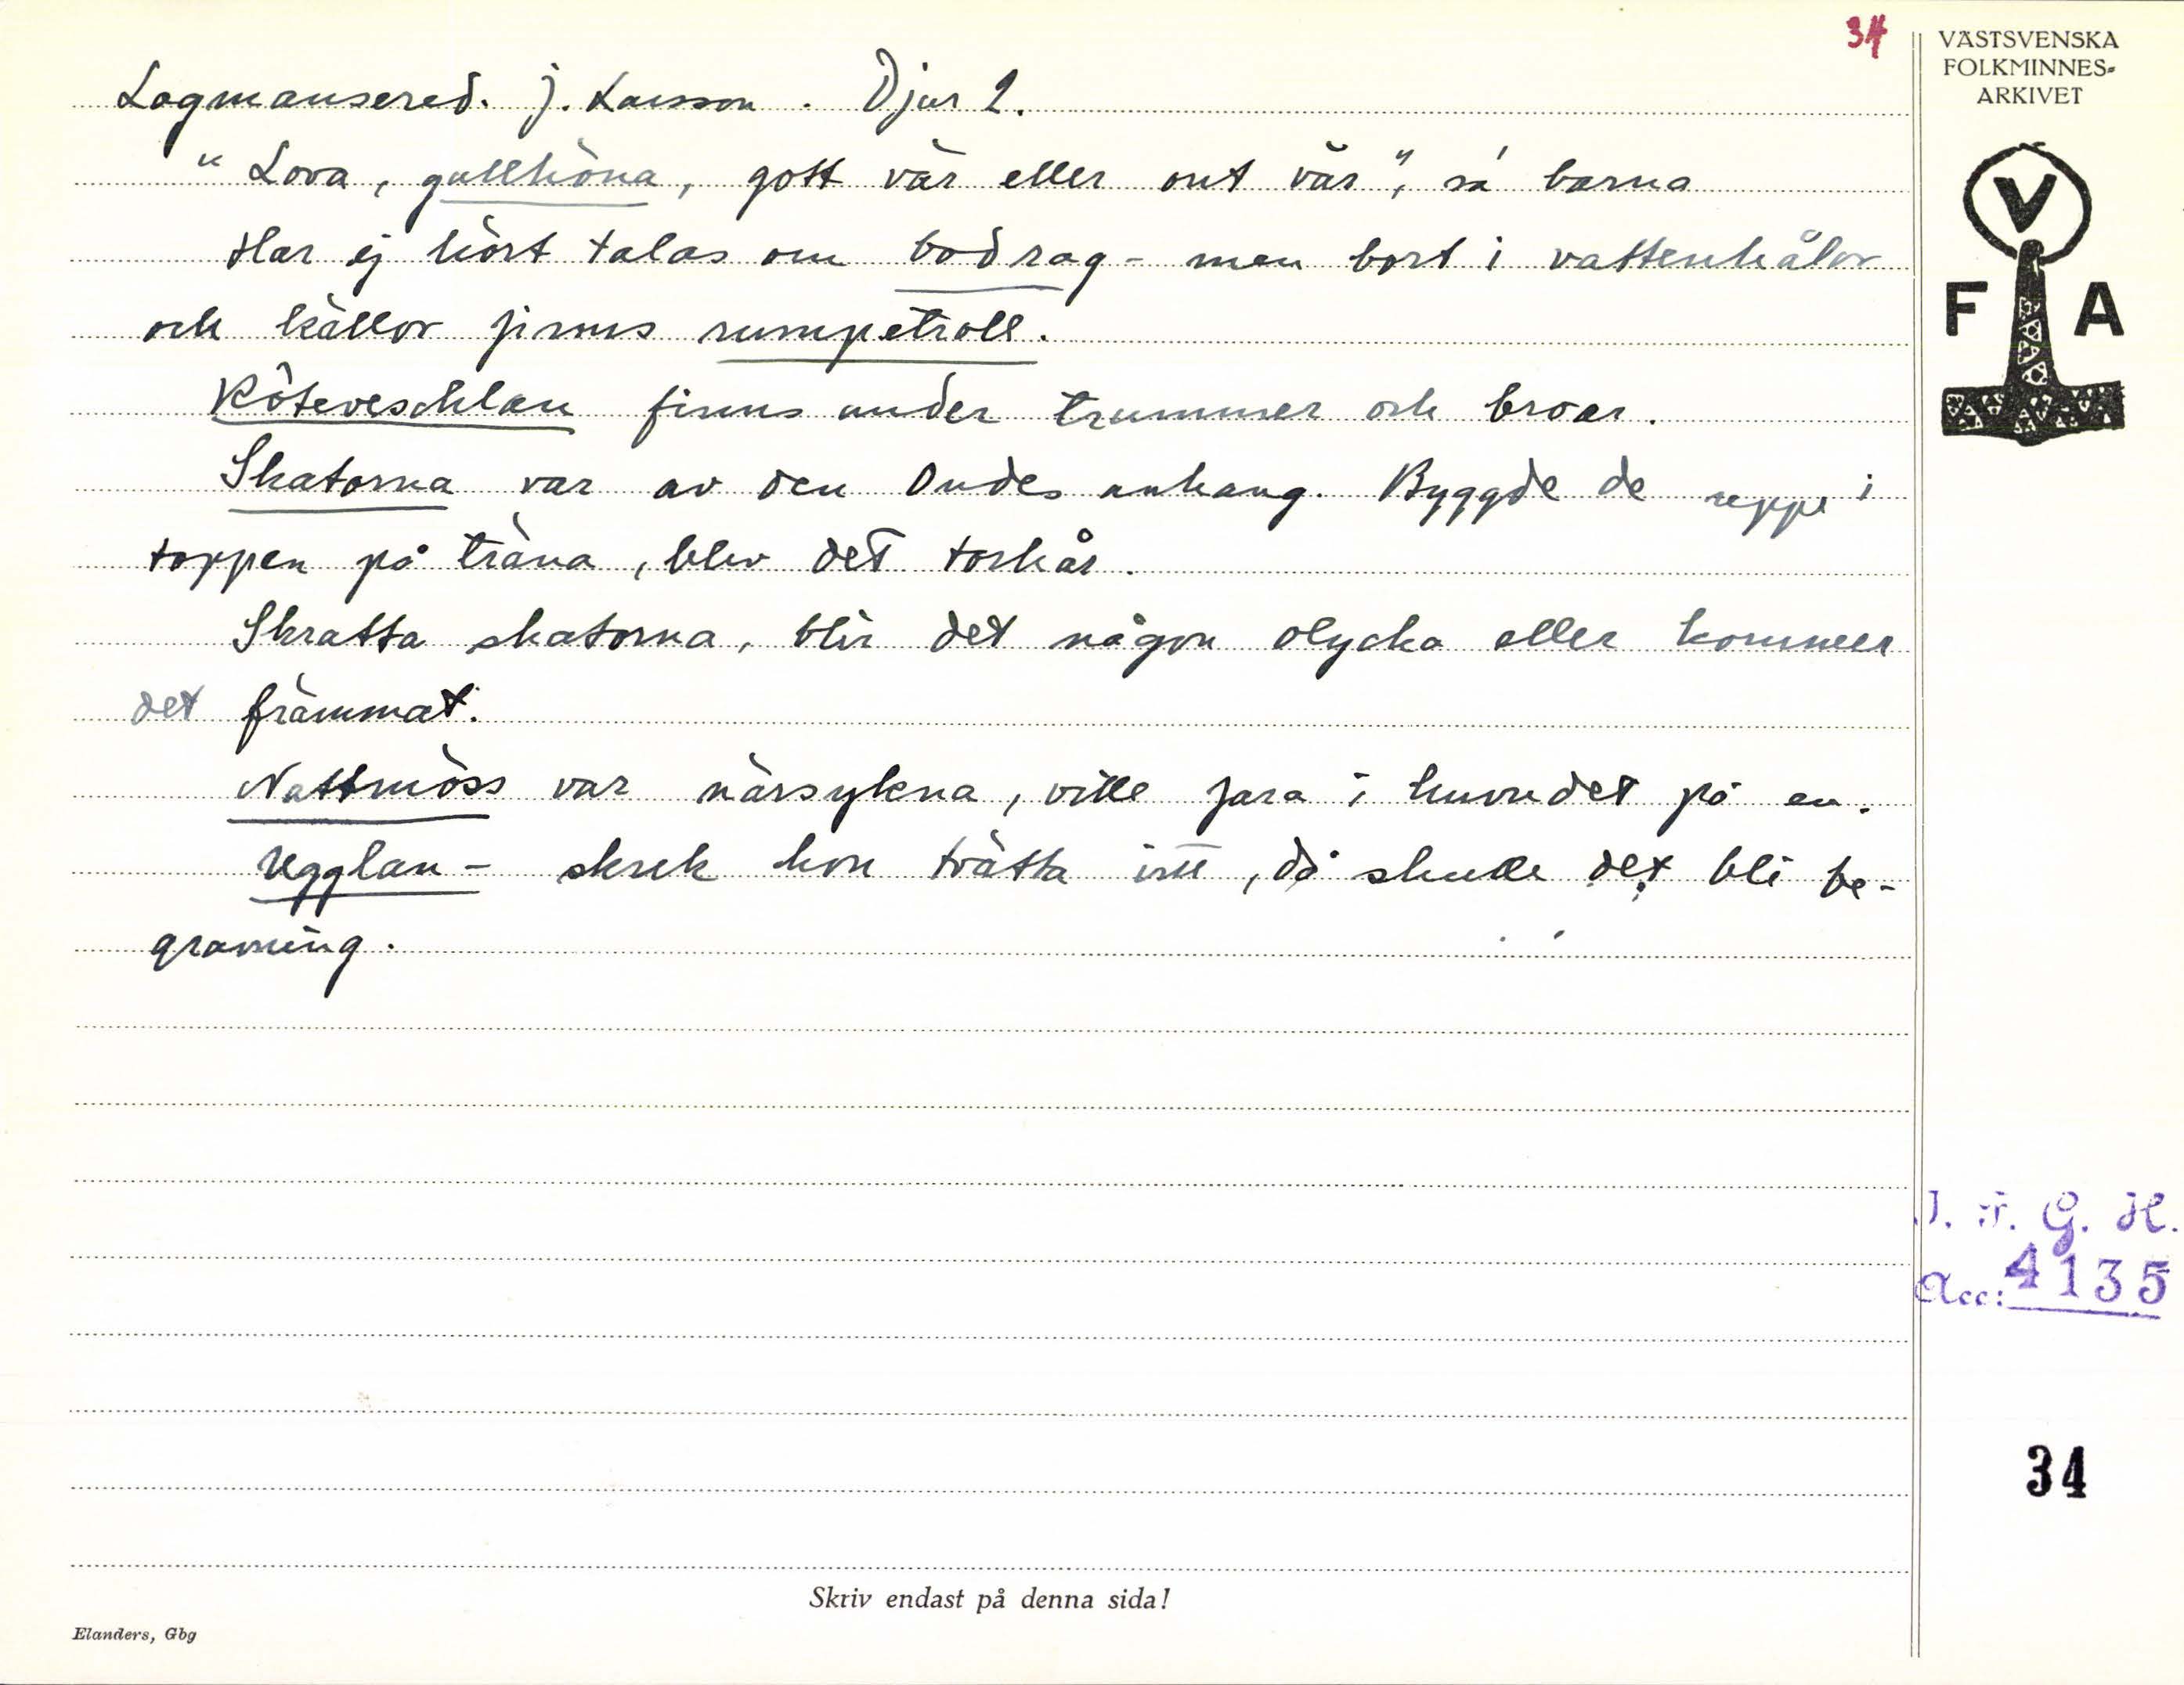 34
Lagmansered. J. Larsson. Djur 2.
"Lova, gullhöna, gott vär eller ont vär", sa barna
Har ej hört talas om bodrag - men bort i vattenhålor
och källor finns rumpetroll.
Köteveschlan finns under trummer och broar.
Skatorna var av den Ondes anhang. Byggde de uppe i
toppen på träna, blev det torkår.
Skratta skatorna, blir det någon olycka eller kommer
det främmat.
Nattmöss var närsykna, ville fara i huvudet på en.
Ugglan - skrek hon trätta itt, då skulle det bli be-
gravning.
Skriv endast på denna sida!
Elanders, Gbg
VÄSTSVENSKA
FOLKMINNES-
ARKIVET
V
F A
I. F. G. H.
Acc: 4135
34